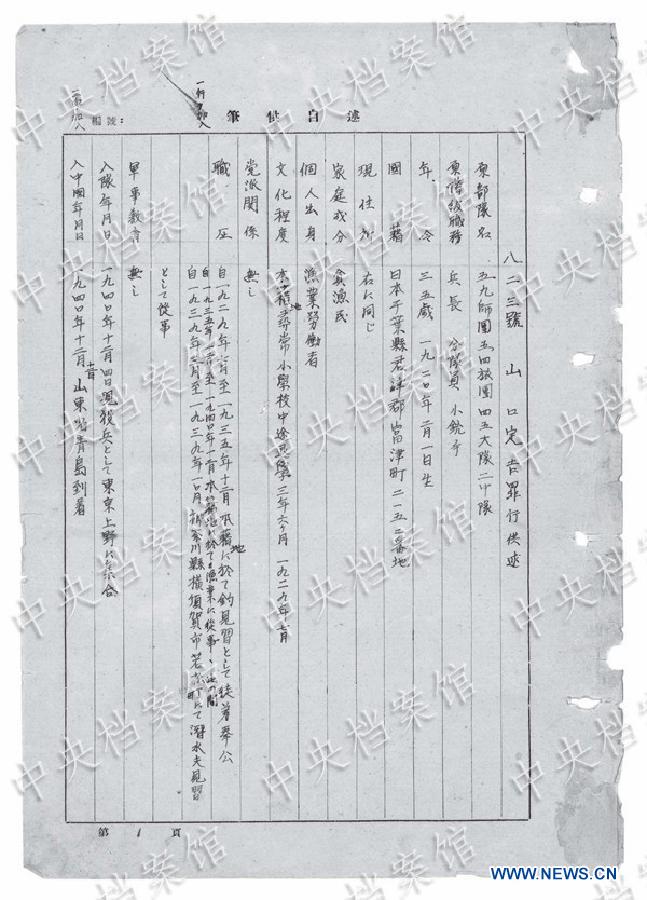 述自供筆
編號:
八二三號 山口完吉罪行供述
原部隊名 五九師團五四旅團四五大隊二中隊
原階級職務 兵長 分隊員 小銃手
年 令 三五歳 一九二〇年二月一日生
國 籍 日本千葉縣君津郡富津町二一五二番地
現住所 右に同じ
家庭成分 貧漁民
個人出身 漁業勞働者
文化程度 尋常小學校中途 三年六ヶ月 一九二九年
党派関係 無し
職 歴 自一九二九年 月至一九三五年十二月 本籍地に於て釣見習として 奉公
自一九三五年 至一九四〇年 本籍地に於て漁業に從事し 此の間
自一九三九年 月至一九三九年一〇月 神奈川縣橫須賀市若松町にて潛水夫見習
として從事
軍事教育 無し
入隊年月日 一九四〇年十二月四日現役兵として東京上野に集合
入中国年月日 一九四〇年十二月 山東省青島到着
第 1 頁
中央档案馆
WWW.NEWS.CN